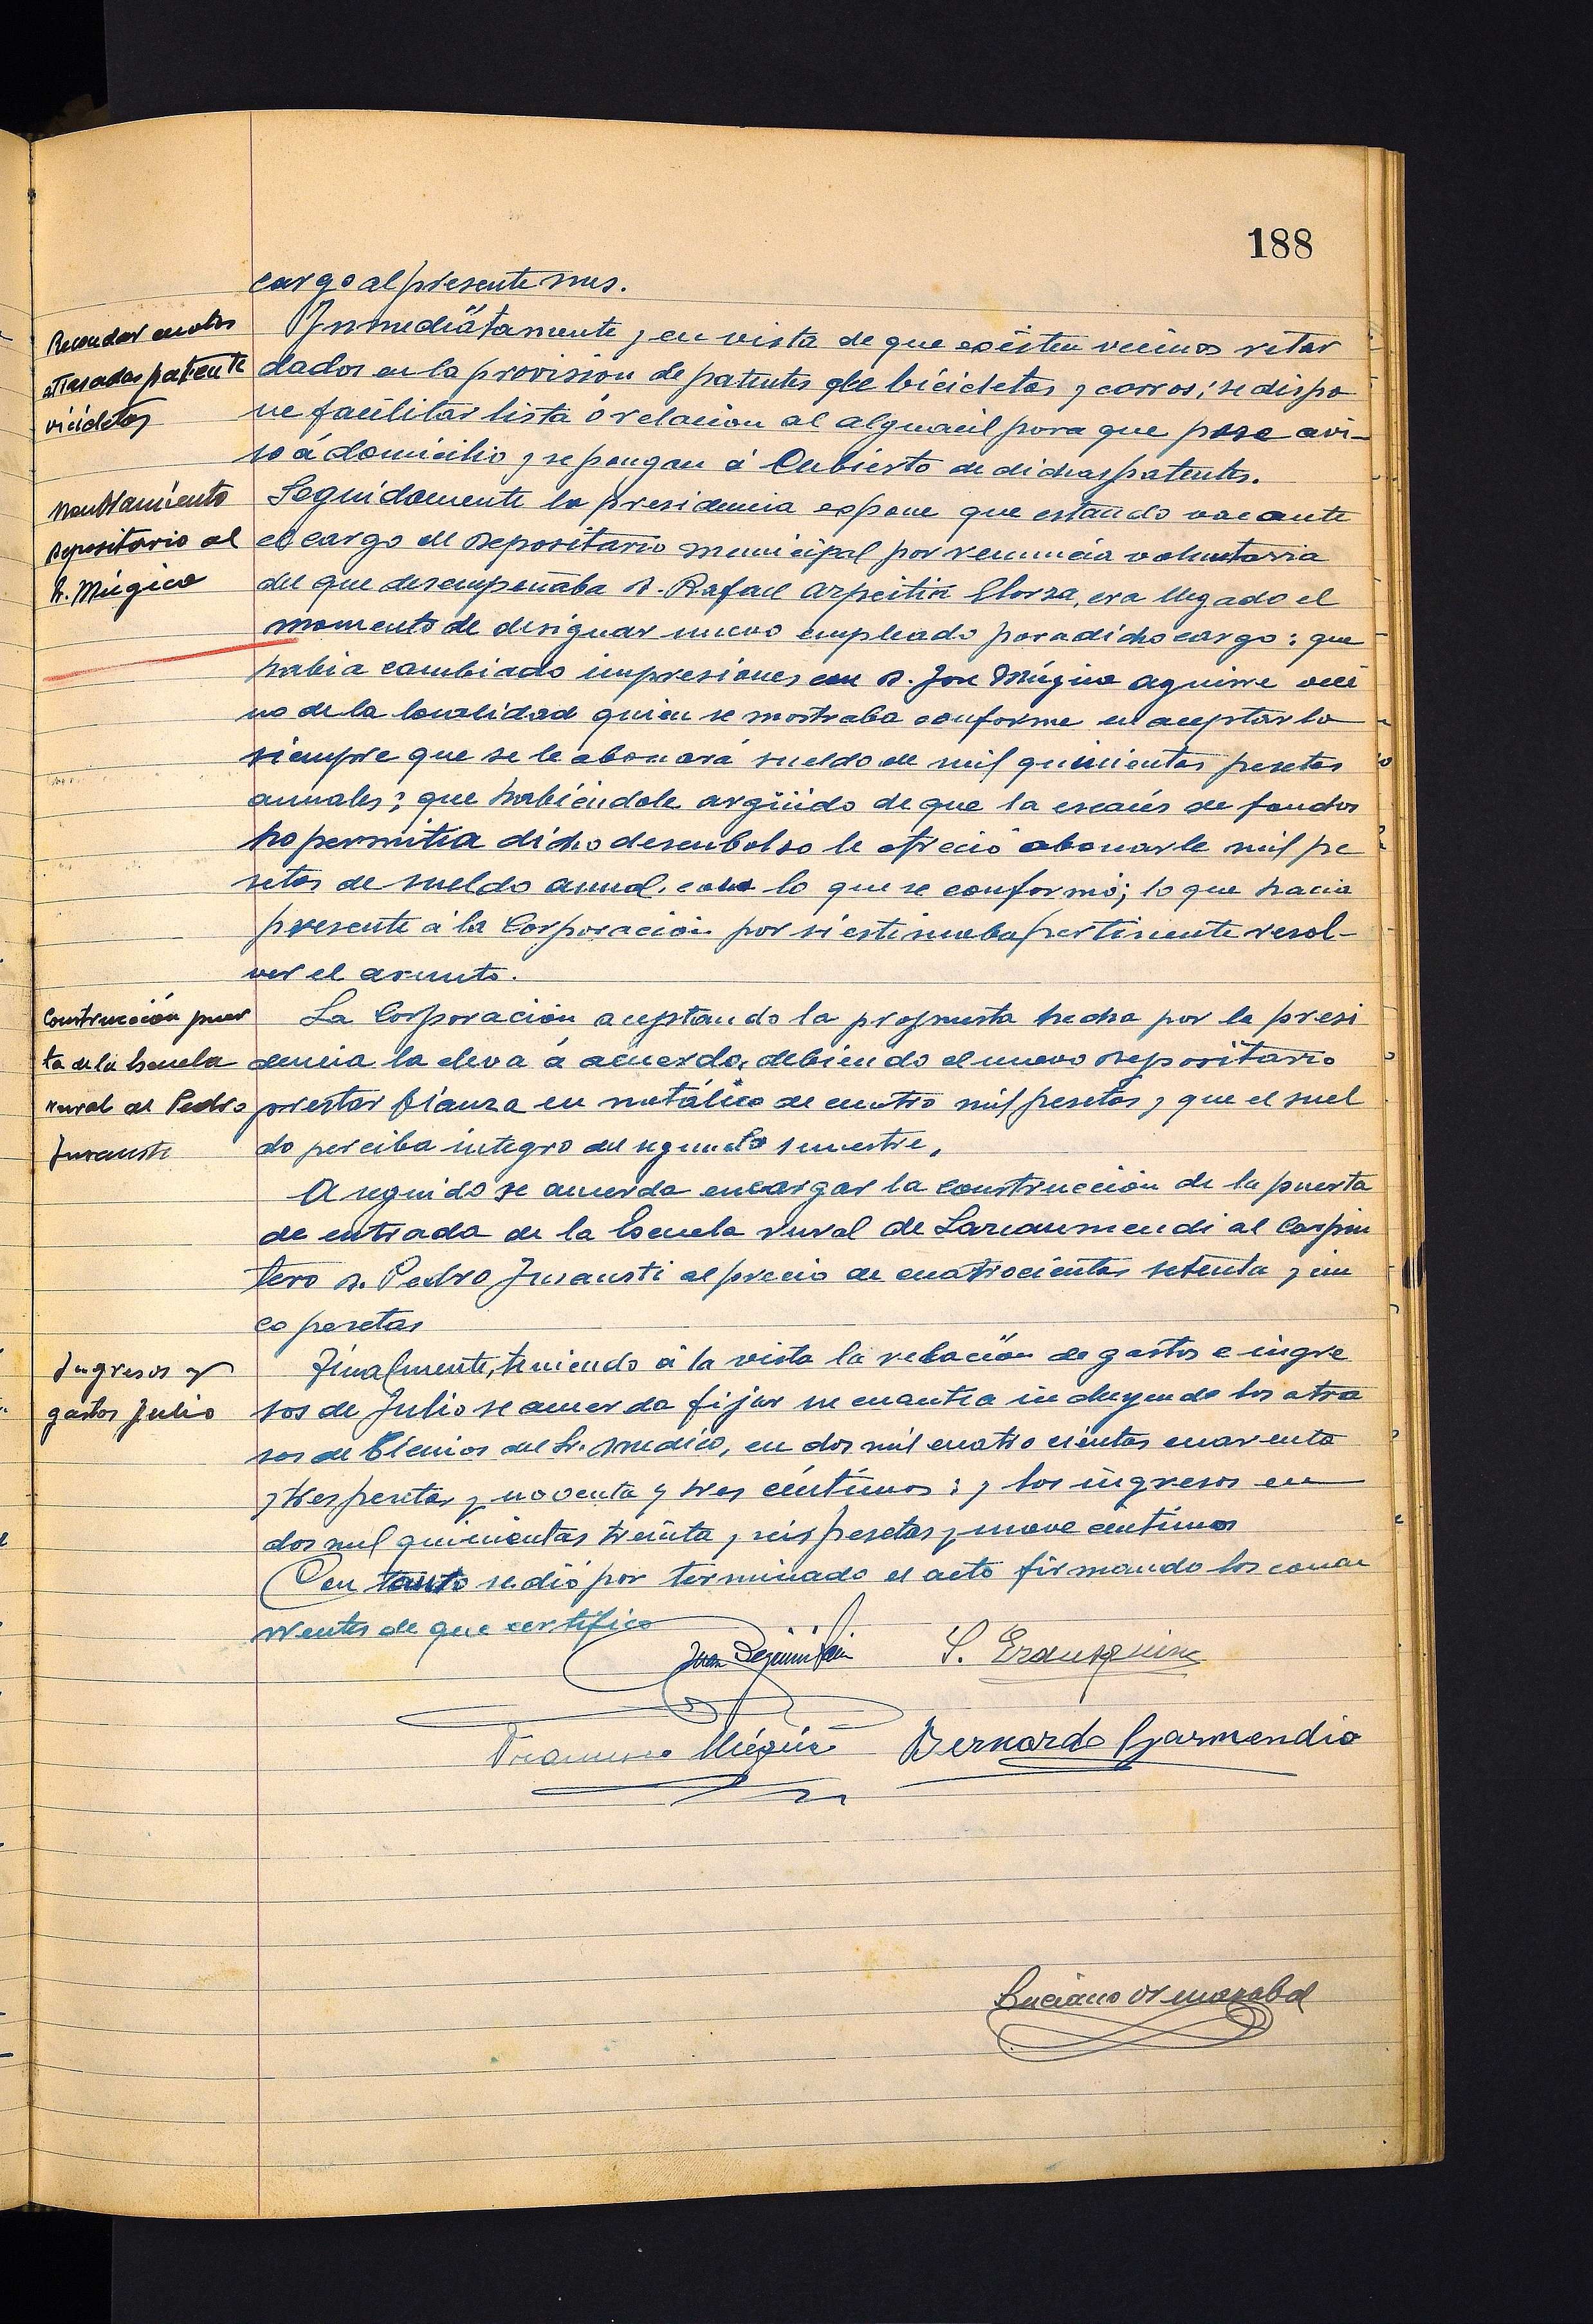 188
cargo al presente mes.
Recaudar cuotas
atrasadas patente
vicicletas
Inmediatamente y en vista de que existen vecinos retar
dados en la provision de patentes de bicicletas y carros; se dispo
ne facilitar lista ó relacion al alguacil para que pase avi-
so á domicilio y se pongan á Cubierto de dichas patentes.
Nombramiento
Depositario al
Sr. Múgica
Seguidamente la presidencia expone que estando vacante
el cargo de Depositario municipal por renuncia voluntaria
del que desempeñaba D. Rafael Azpeitia Elorza, era llegado el
momento de designar nuevo empleado para dicho cargo: que
habia cambiado impresiones con D. José Múgica Aguirre veci
no de la localidad quien se mostraba conforme en aceptarlo
siempre que se le abonará sueldo de mil quinientas pesetas
anuales; que habiéndole argüido de que la escasés de fondos
no permitia dicho desenbolso le ofreció abonarle mil pe
setas de sueldo anual, con lo que se conformó; lo que hacia
presente á la Corporación por si estimaba pertinente resol-
ver el asunto.
Construcción puer
ta de la Escuela
rural al Pedro
Inxausti
La Corporación aceptando la propuesta hecha por la presi
dencia la eleva á acuerdo, debiendo el nuevo Depositario
prestar fianza en metálico de cuatro mil pesetas y que el suel
do perciba integro del segundo semestre.
A seguido se acuerda encargar la construcción de la puerta
de entrada de la Escuela rural de Larraumendi al Carpin
tero D. Pedro Inxausti al precio de cuatrocientas setenta y cin
co pesetas
Ingresos y
gastos Julio
Finalmente, teniendo á la vista la relación de gastos e ingre
sos de Julio se acuerda fijar su cuantia incluyendo los atra
sos de del Sr. Medico, en dos mil cuatro cientas cuarenta
y tres pesetas y noventa y tres céntimos; y los ingresos en
dos mil quinientas treinta y seis pesetas y nueve centimos
En tanto se dió por terminado el acto firmando los concu
rrentes de que certifico
Juan S. Erausquin
Francisco Múgica Bernardo Garmendia
Luciano Ormazabal